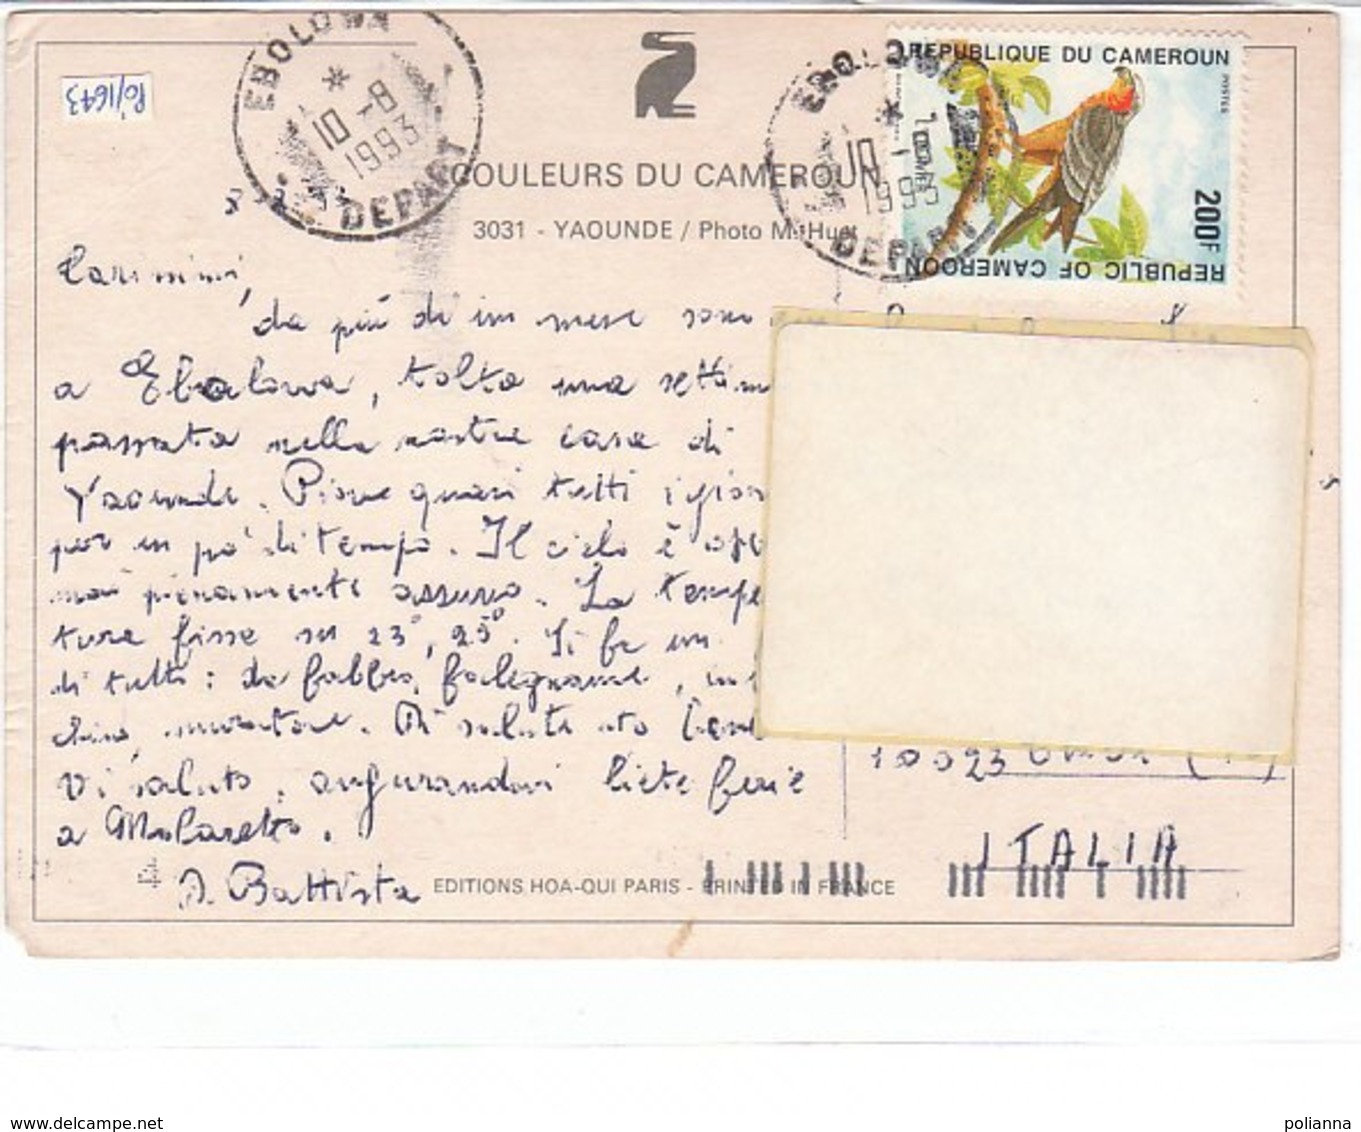 EBOLOWA
10-8
1993
DEPART
EBOLOWA
10
1993
DEPART
REPUBLIQUE DU CAMEROUN
POSTES
200F
REPUBLIC OF CAMEROON
P0/1643
COULEURS DU CAMEROUN
3031 - YAOUNDE / Photo M. Huet
Carissimi,
da più di un mese sono
a Ebolowa, tolta una settim
passata nella nostra casa di
Yaounde. Piove quasi tutti i gior
per un po' di tempo. Il cielo è
mai pienamente azzurro. La tempe
tura fissa su 23°, 25°. Si fa un
di tutto: da fabbro, falegname,
muratore. Di salute sto bene
Vi saluto, augurandovi liete ferie
a
D. Battista
10023
ITALIA
4
EDITIONS HOA-QUI PARIS - PRINTED IN FRANCE
www.delcampe.net
polianna